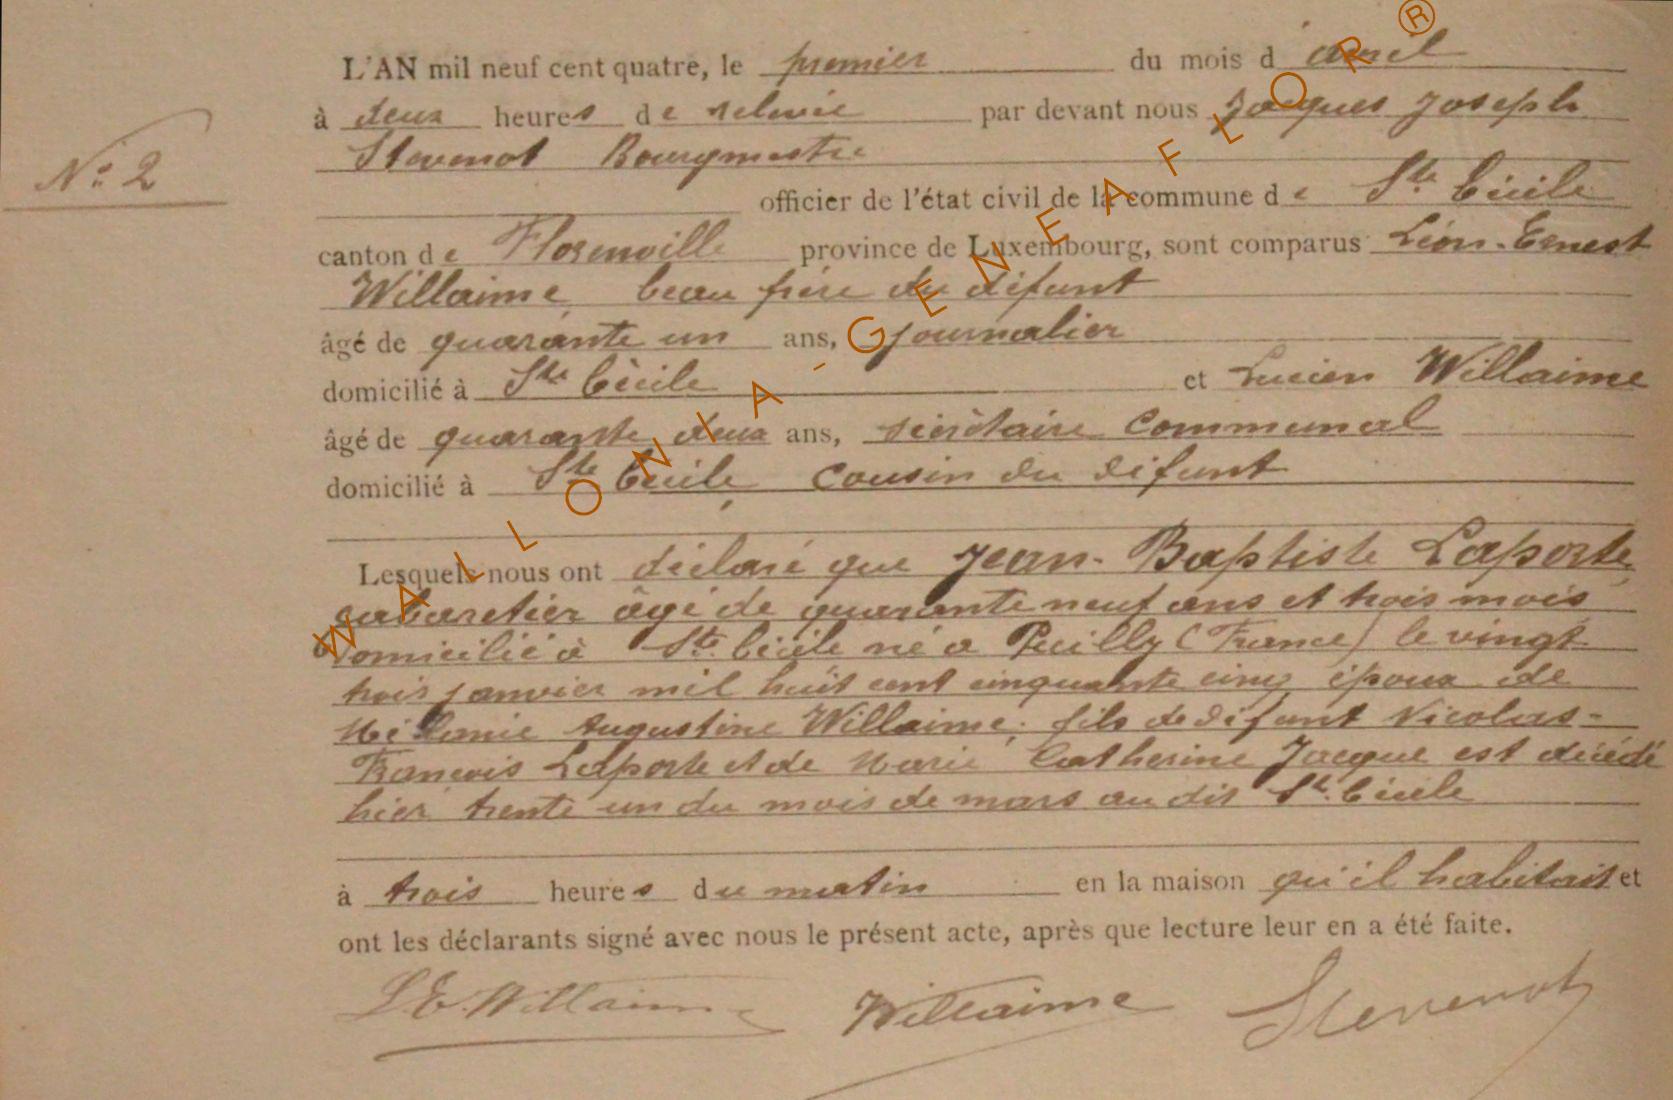 L'AN mil neuf cent quatre, le premier du mois d avril
à deux heures de relevée par devant nous Jacques Joseph
Stevenot Bourgmestre
N° 2
officier de l'état civil de la commune de Ste Cécile
canton de Florenville province de Luxembourg, sont comparus Léon-Ernest
Willaime beau frère du défunt
âgé de quarante un ans, journalier
domicilié à Ste Cécile et Lucien Willaime
âgé de quarante deux ans, secrétaire communal
domicilié à Ste Cécile cousin du défunt
Lesquels nous ont déclaré que Jean-Baptiste Laporte
cabaretier âgé de quarante neuf ans et trois mois
domicilié à Ste Cécile né a Puilly (France) le vingt
trois janvier mil huit cent cinquante cinq époux de
Mélanie Augustine Willaime; fils de défunt Nicolas-
François Laporte et de Marie Catherine Jacque est décédé
hier trente un du mois de mars au dit Ste Cécile
à trois heures du matin en la maison qu'il habitait et
ont les déclarants signé avec nous le présent acte, après que lecture leur en a été faite.
L E Willaime Willaime Stevenot
WALLONIA-GENEAFLOR®